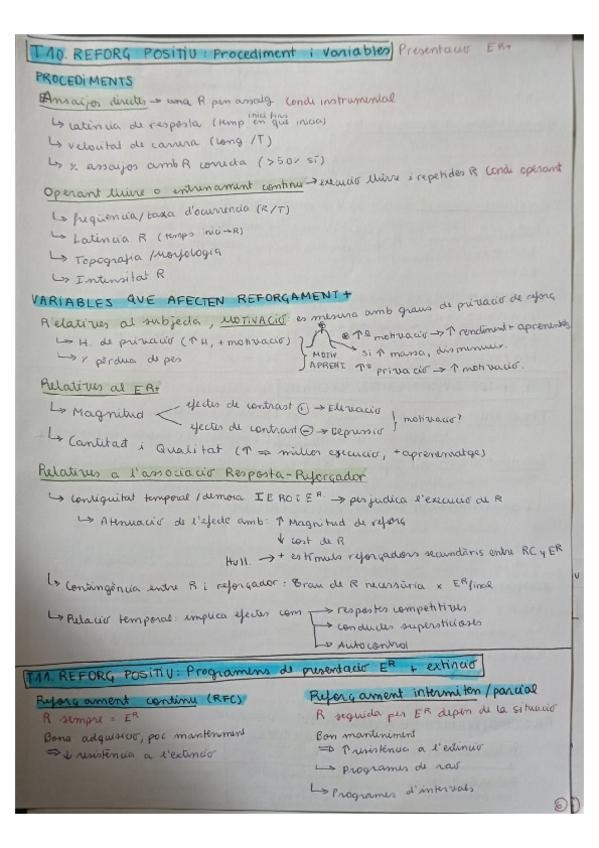 T.10. REFORÇ POSITIU: Procediment i Variables Presentació ER+
PROCEDIMENTS
Assaijos directes → una R per assaig Condi instrumental
↳ Latència de resposta (temp inici fins en què inicia)
↳ velocitat de carrera (long/T)
↳ % assaijos amb R correcta (>50% sí)
Operant lliure o entrenament continu → execució lliure i repetides R Condi operant
↳ freqüència/taxa d'ocurrència (R/T)
↳ Latència R (temps inici→R)
↳ Topografia/Morfologia
↳ Intensitat R
VARIABLES QUE AFECTEN REFORÇAMENT+
Relatives al subjecte, MOTIVACIÓ: es mesura amb graus de privació de reforç
↳ H. de privació (↑H, + motivació)
↳ % pèrdua de pes
MOTIV
APRENT
motivació → ↑ rendiment + aprenentatg
si ↑ massa, disminueix
privació → ↑ motivació.
Relatives al ER+
↳ Magnitud
efectes de contrast + → Elevació
efectes de contrast − → Depressió
motivació?
↳ Cantitat i Qualitat (↑ ⇒ millor execució, + aprenentatge)
Relatives a l'associació Resposta-Reforçador
↳ Contigüitat temporal/demora I E R O i ER → perjudica l'execució de R
↳ Atenuació de l'efecte amb: ↑ Magnitud de reforç
↓ cost de R
Hull → + estímuls reforçadors secundaris entre RC y ER
↳ Contingència entre R i reforçador: Grau de R necessària x ER final
↳ Relació temporal: implica efectes com → respostes competitives
→ conductes supersticioses
→ Autocontrol
T.11. REFORÇ POSITIU: Programes de presentació ER + extinció
Reforçament continu (RFC)
R sempre = ER
Bona adquisició, poc manteniment
⇒ ↓ resistència a l'extinció
Reforçament intermitent/parcial
R seguida per ER depèn de la situació
Bon manteniment
⇒ ↑ resistència a l'extinció
↳ Programes de raó
↳ Programes d'intervals
6